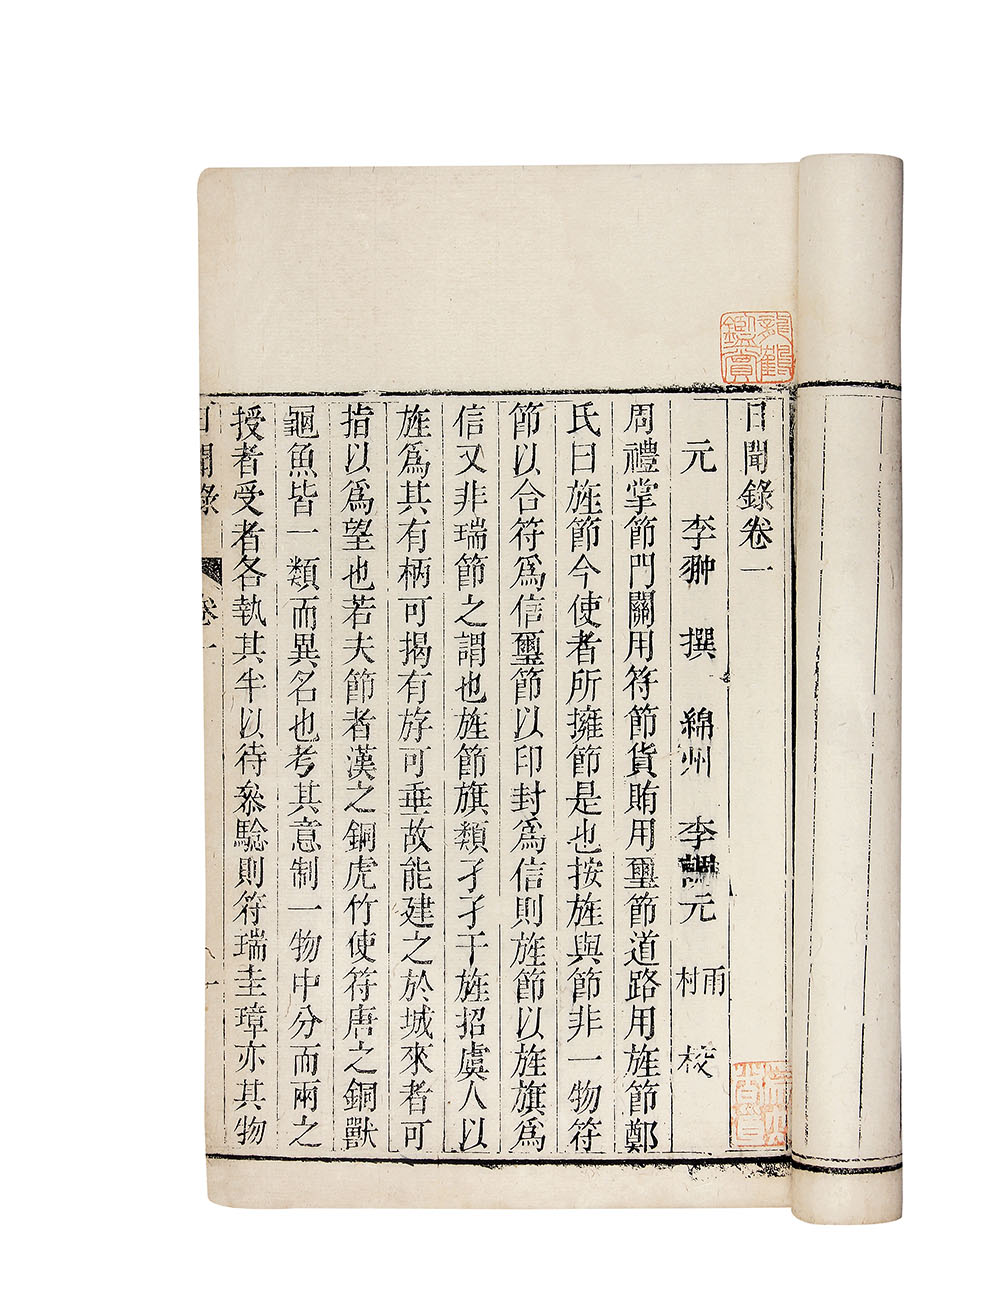 日聞錄卷一
元 李翀 撰 綿州 李調元 雨村 校
周禮掌節門關用符節貨賄用璽節道路用旌節鄭
氏曰旌節今使者所擁節是也按旌與節非一物符
節以合符爲信璽節以印封爲信則旌節以旌旗爲
信又非瑞節之謂也旌節旗類孑孑干旌招虞人以
旌爲其有柄可揭有斿可垂故能建之於城來者可
指以爲望也若夫節者漢之銅虎竹使符唐之銅獸
龜魚皆一類而異名也考其意制一物中分而兩之
授者受者各執其半以待叅騐則符瑞圭璋亦其物
日聞錄 卷一 一
龍鶴鑑賞